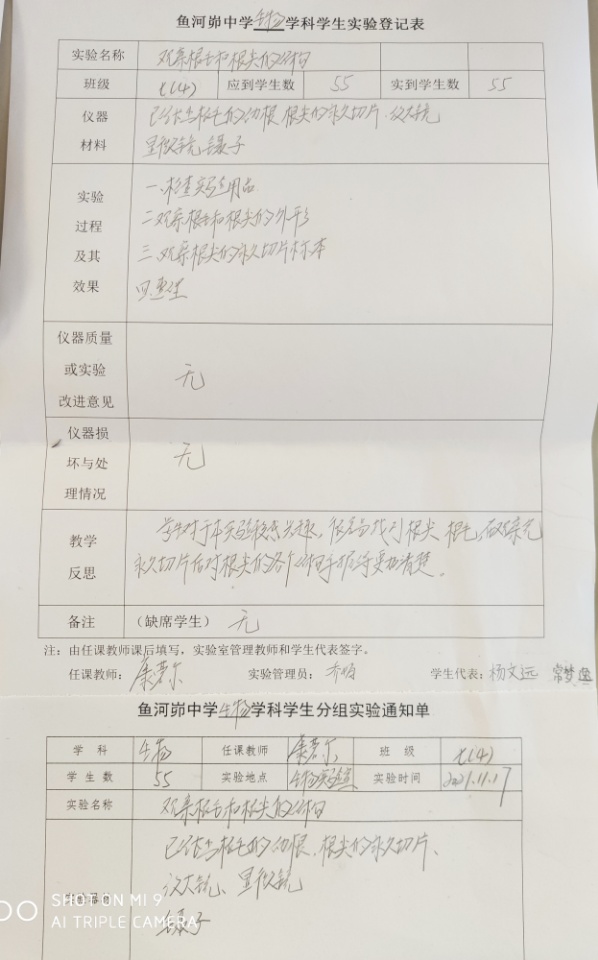 鱼河峁中学生物学科学生实验登记表
实验名称 观察根毛和根尖的结构
班级 七(4) 应到学生数 55 实到学生数 55
仪器 已长出根毛的幼根、根尖的永久切片、放大镜
材料 显微镜、镊子
实验 一、检查实验用品
过程 二、观察根毛和根尖的外形
及其 三、观察根尖的永久切片标本
效果 四、整理
仪器质量
或实验 无
改进意见
仪器损
坏与处 无
理情况
教学 学生对于本实验较感兴趣，很容易找到根尖、根毛，
反思 永久切片后对根尖的各个结构掌握得更加清楚。
备注 （缺席学生） 无
注：由任课教师课后填写，实验室管理教师和学生代表签字。
任课教师： 实验管理员： 学生代表：杨文远 常梦
鱼河峁中学生物学科学生分组实验通知单
学科 生物 任课教师 班级 七(4)
学生数 55 实验地点 生物实验室 实验时间 2021.11.17
实验名称 观察根毛和根尖的结构
已长出根毛的幼根、根尖的永久切片、
放大镜、显微镜
镊子
SHOT ON MI 9
AI TRIPLE CAMERA